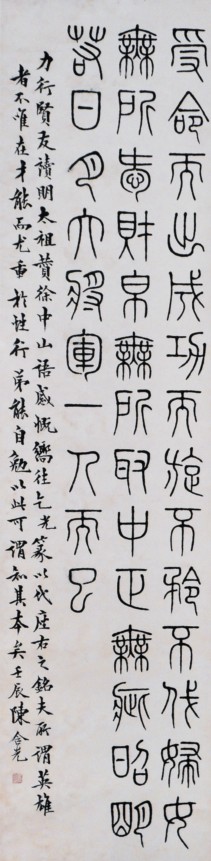 受命而出成功而旋不矜不伐婦女
無所愛財帛無所取中正無疵昭明
若日月大將軍一人而已
力行賢友讀明太祖贊徐中山語感慨嚮往乞光篆以代座右之銘夫所謂英雄
者不唯在才能而尤重於性行第能自勉以此可謂知其本矣壬辰陳含光